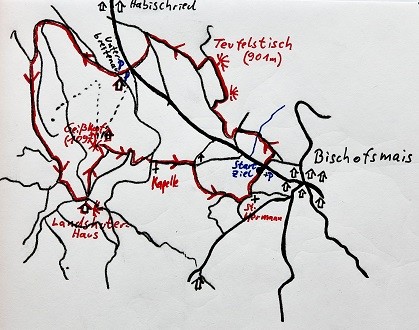 Habischried
Unter-
breitenau
P
Teufelstisch
(901m)
Geißkopf
(1097m)
Bischofsmais
Start
Ziel
P
Kapelle
St.
Hermann
Landshuter-
Haus